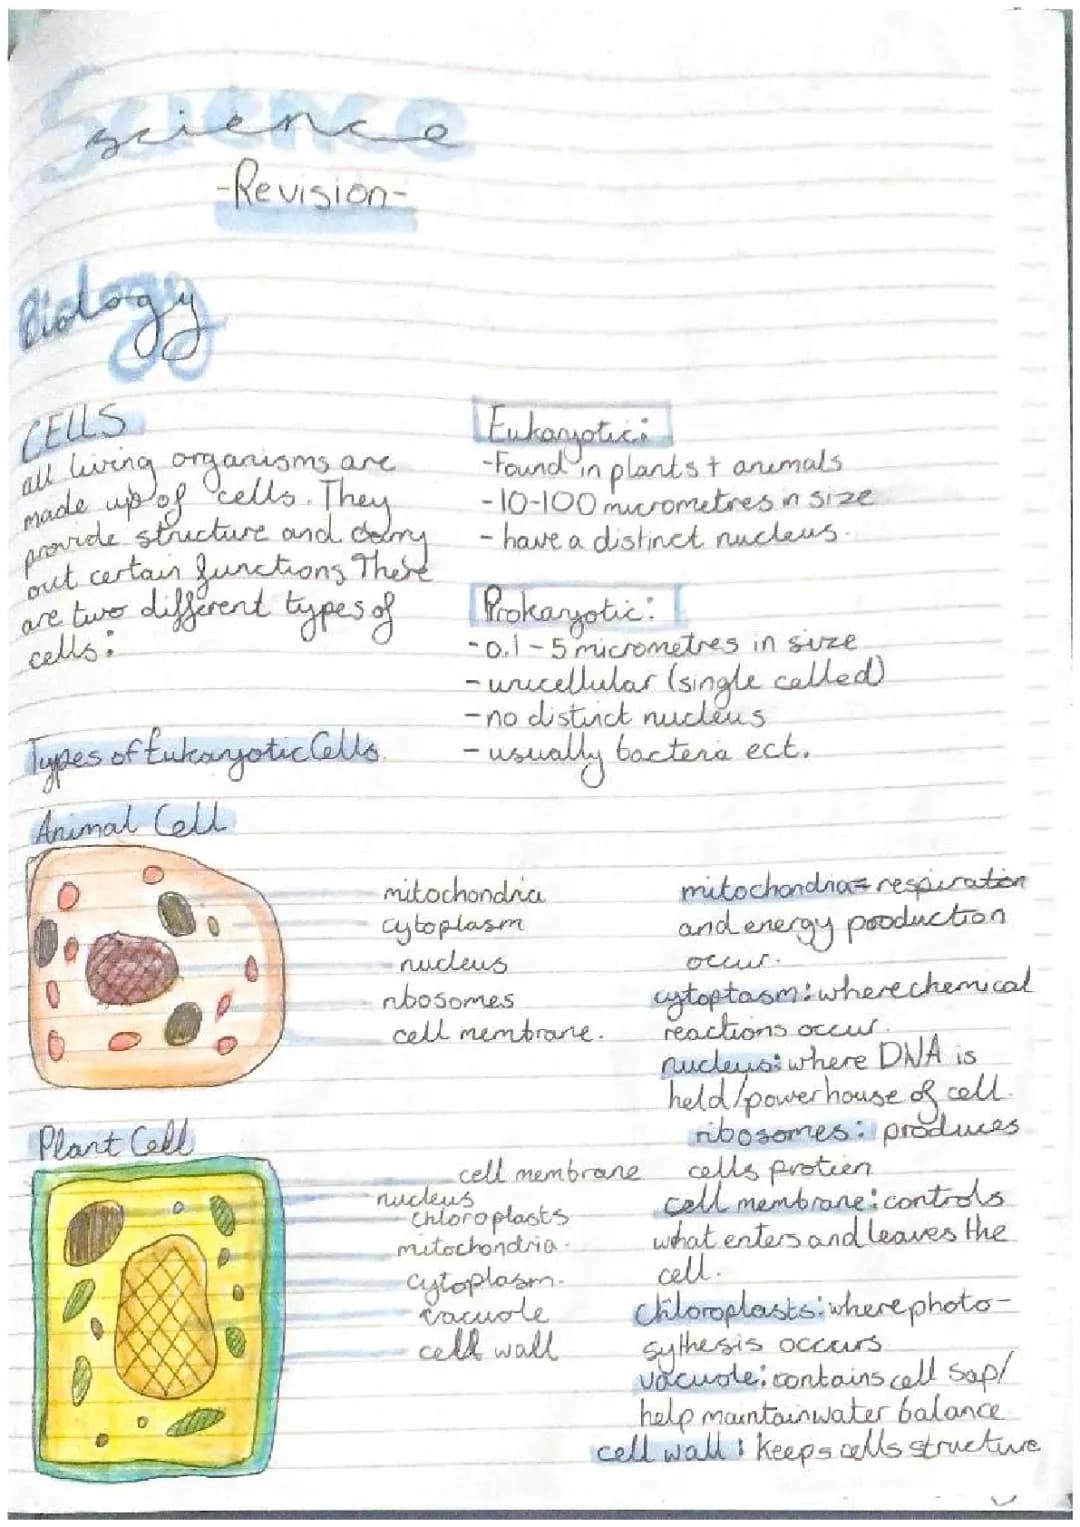 Science
science
-Revision-
Biology
CELLS
all living organisms are
made up of cells. They
provide structure and carry
out certain functions. There
are two different types of
cells:
Eukaryotic:
-Found in plants + animals
-10-100 micrometres in size
- have a distinct nucleus.
Prokaryotic:
-0.1-5 micrometres in size
-unicellular (single celled)
-no distinct nucleus
-usually bacteria ect.
Types of Eukaryotic Cells.
Animal Cell
mitochondria
cytoplasm
nucleus
ribosomes
cell membrane.
mitochondria= respiration
and energy production
occur.
cytoplasm: where chemical
reactions occur.
nucleus: where DNA is
held/powerhouse of cell.
ribosomes: produces
cells protien
cell membrane: controls
what enters and leaves the
cell.
chloroplasts: where photo-
sythesis occurs
vacuole: contains cell sap/
help maintain water balance
cell wall: keeps cells structure
Plant Cell
cell membrane
nucleus
chloroplasts
mitochondria.
cytoplasm.
vacuole
cell wall